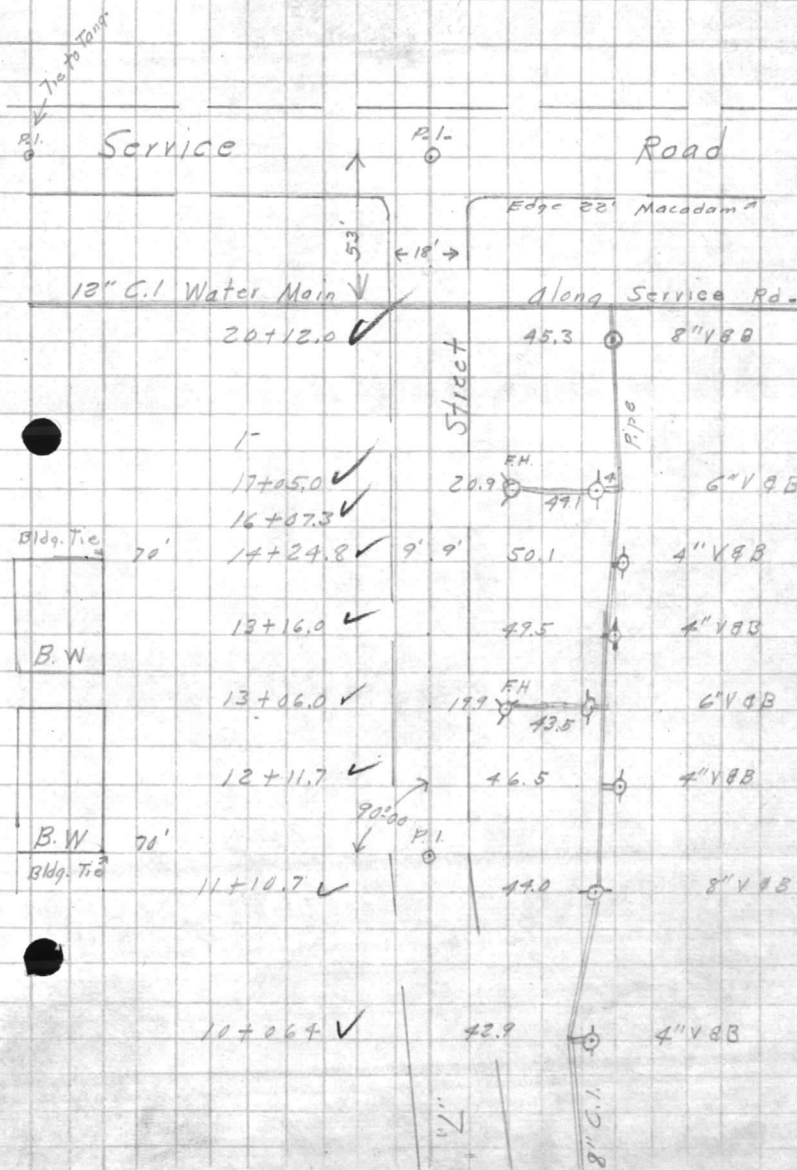 Tie to Tang.
P.I.
Service
P.I.
Road
Edge 22' Macadam
53'
18'
12" C.I Water Main
along Service Rd.
20+12.0 45.3 8" V & B
Street
Pipe
1-
F.H.
17+05.0 20.9 44.1 4 6" V & B
16+07.3
Bldg. Tie 70' 14+24.8 9' 9' 50.1 4" V & B
13+16.0 49.5 4" V & B
B.W
F.H
13+06.0 19.9 43.5 6" V & B
12+11.7 46.5 4" V & B
90°00
B.W 70' P.I.
Bldg. Tie
11+10.7 44.0 8" V & B
10+064 42.9 4" V & B
8" C.I.